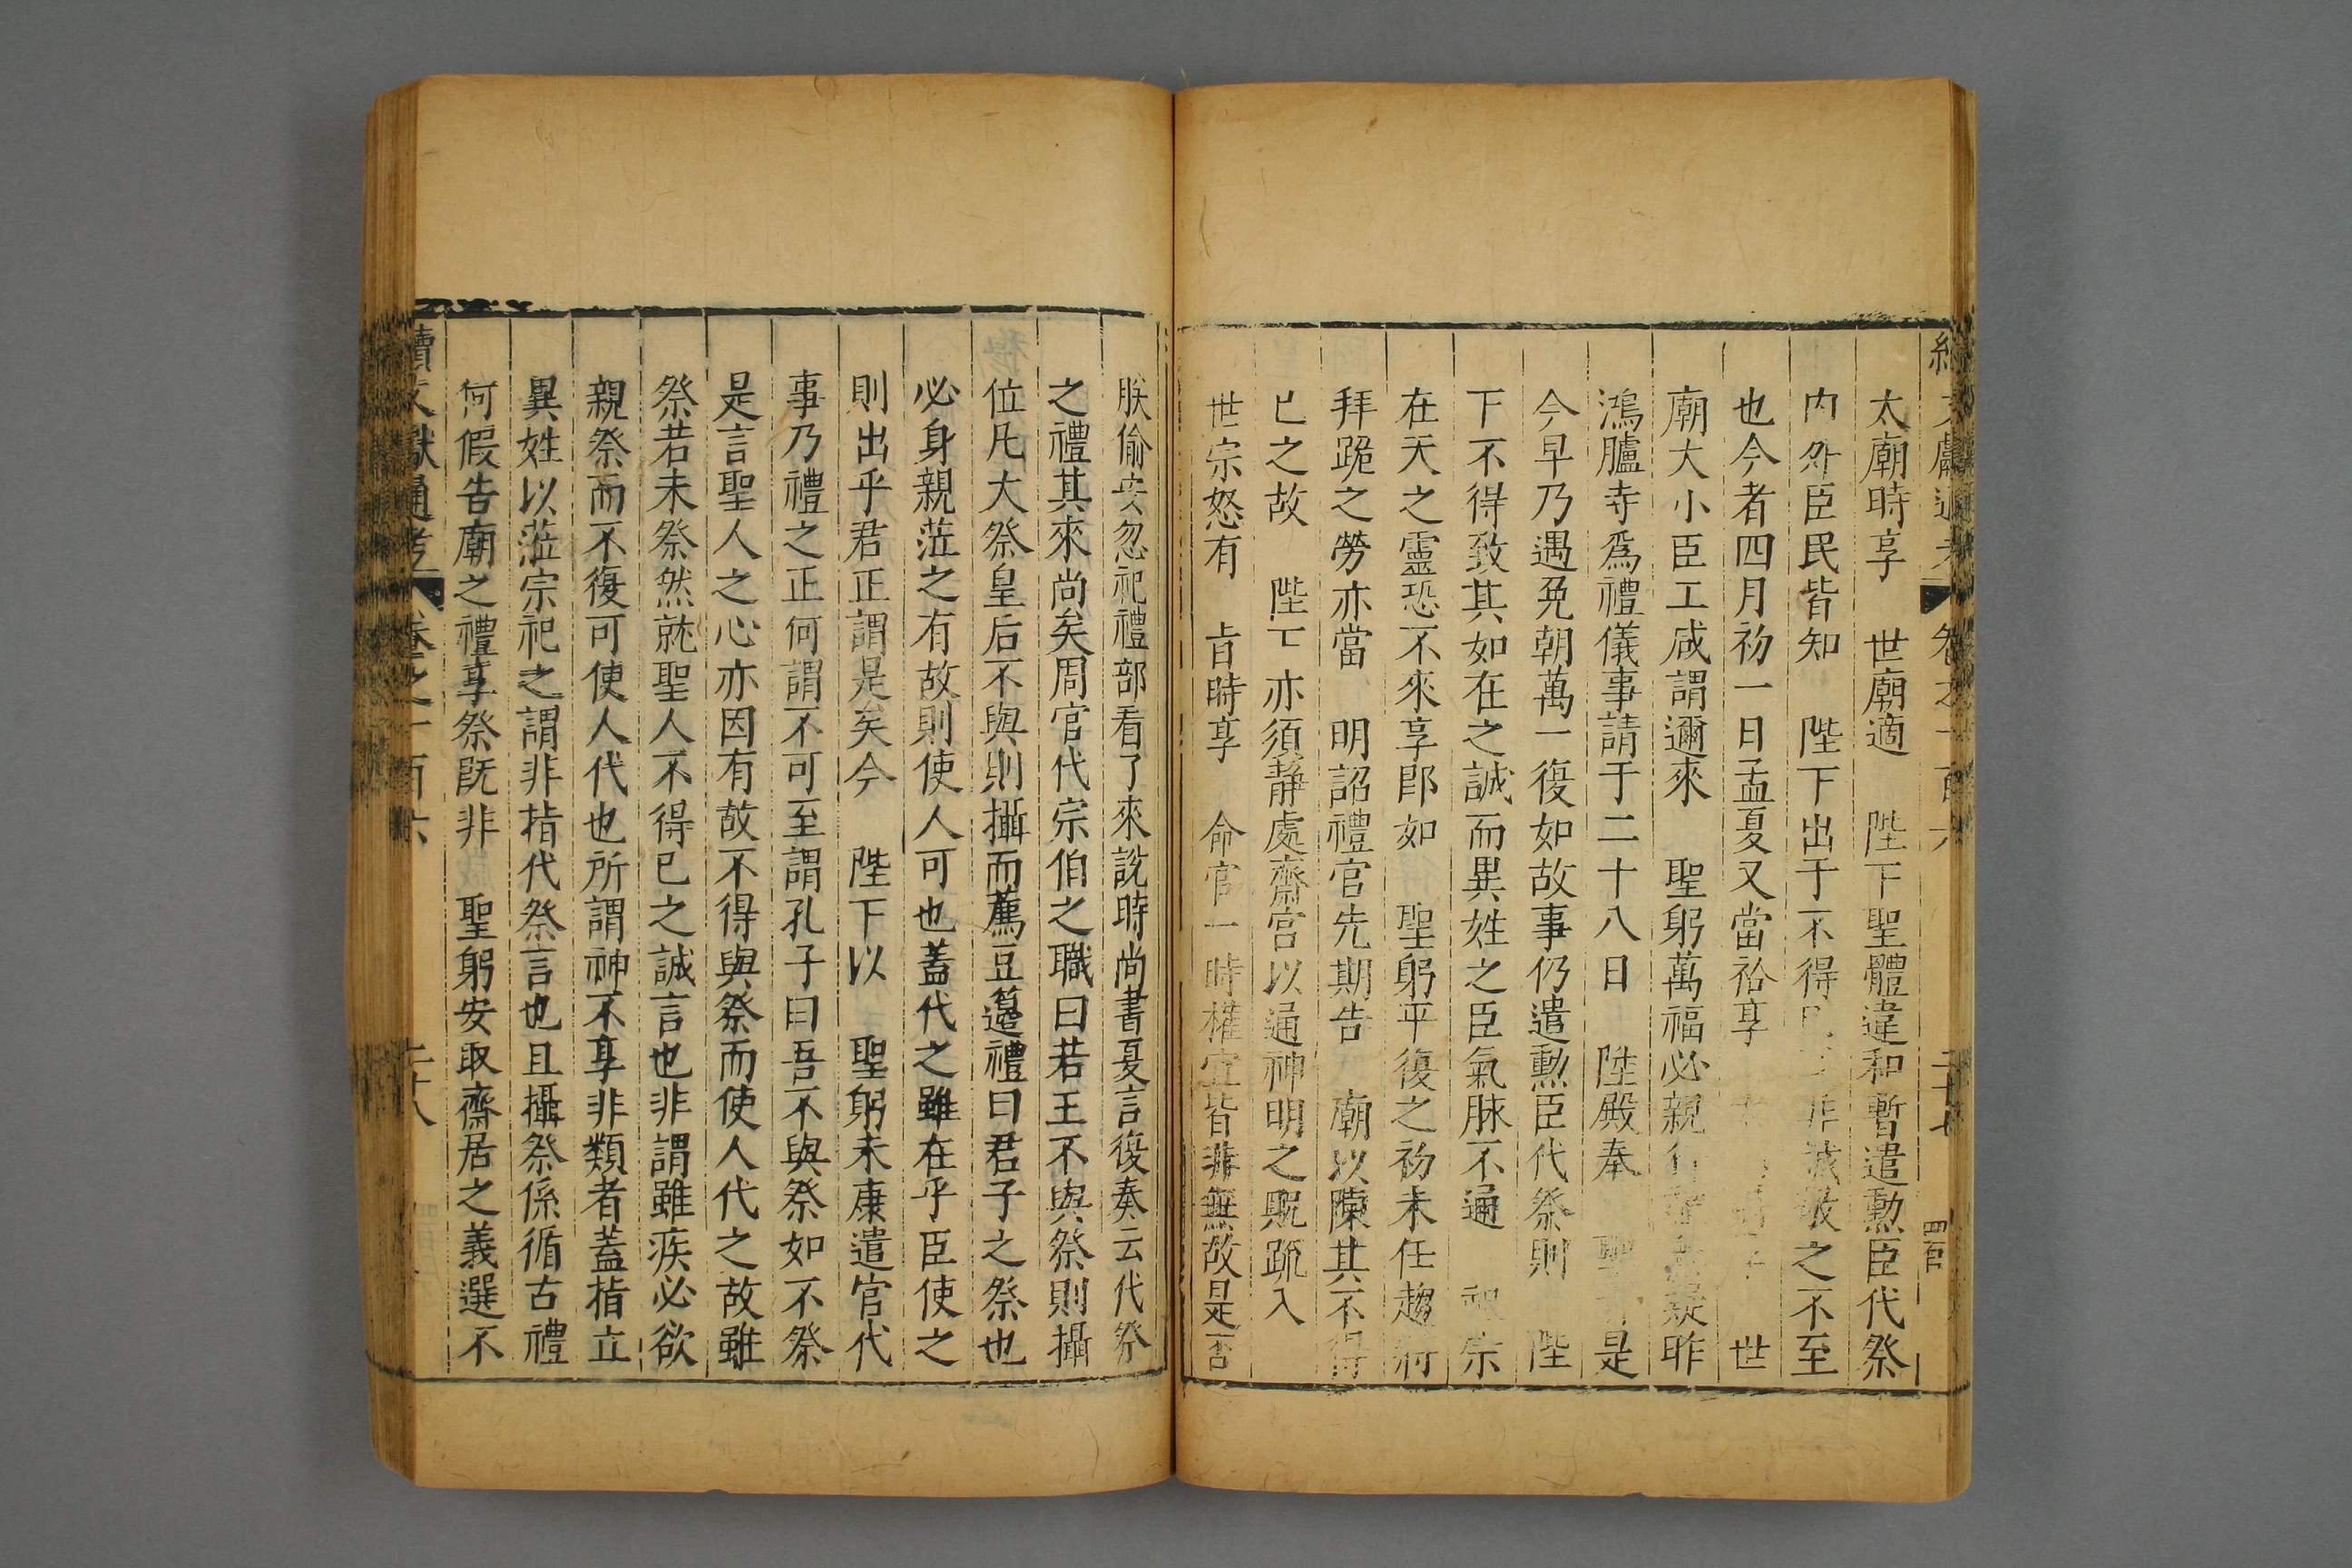 太廟時享　世廟適　陛下聖體違和暫遣勳臣代祭
内外臣民皆知　陛下出于不得誠敬之不至
也今者四月初一日孟夏又當祫享　世
廟大小臣工咸謂邇來　聖躬萬福必親行疑昨
鴻臚寺爲禮儀事請于二十八日　陞殿奉　聖是
今早乃遇免朝萬一復如故事仍遣勳臣代祭則　陛
下不得致其如在之誠而異姓之臣氣脉不通　祖宗
在天之靈恐不來享即如　聖躬平復之初未任趨蹌
拜跪之勞亦當　明詔禮官先期告　廟以陳其不得
已之故　陛下亦須静處齋宫以通神明之貺疏入
世宗怒有　旨時享　命官一時權宜皆非無故是否
朕偷安忽祀禮部看了來說時尚書夏言復奏云代祭
之禮其來尚矣周官代宗伯之職曰若王不與祭則攝
位凡大祭皇后不與則攝而薦豆籩禮曰君子之祭也
必身親蒞之有故則使人可也蓋代之雖在乎臣使之
則出乎君正謂是矣今　陛下以　聖躬未康遣官代
事乃禮之正何謂不可至謂孔子曰吾不與祭如不祭
是言聖人之心亦因有故不得與祭而使人代之故雖
祭若未祭然就聖人不得已之誠言也非謂雖疾必欲
親祭而不復可使人代也所謂神不享非類者蓋指立
異姓以蒞宗祀之謂非指代祭言也且攝祭係循古禮
何假告廟之禮享祭既非　聖躬安取齋居之義選不
續文獻通考　卷之一百六　二十八